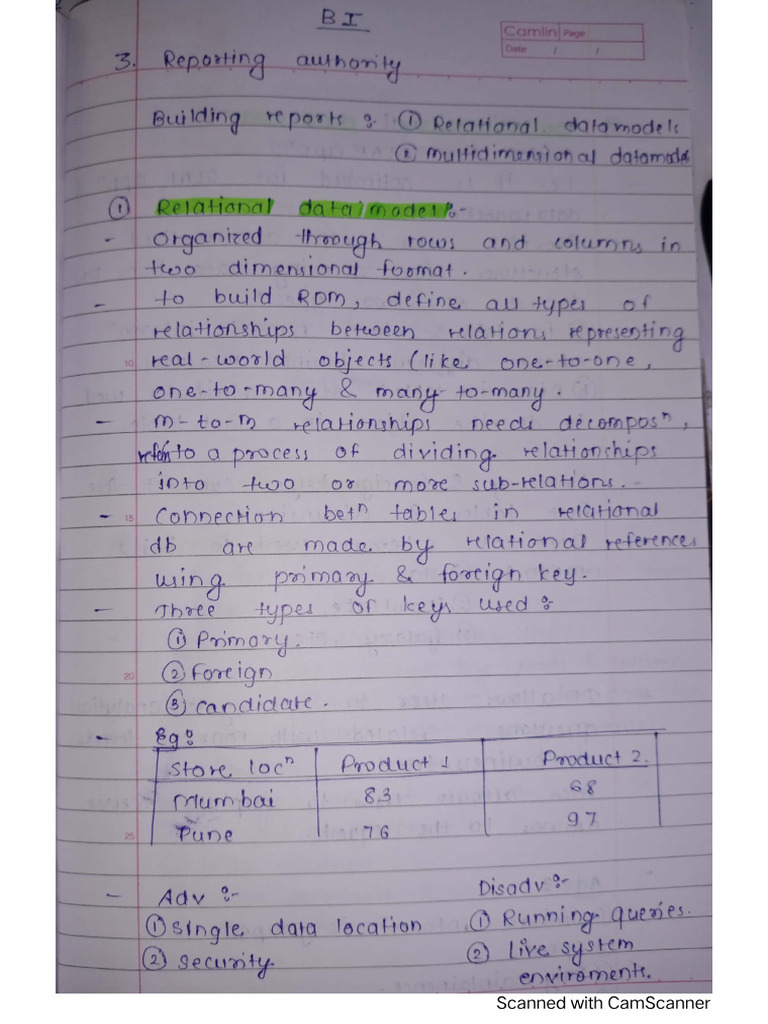 BI
Camlin Page
Date / /
3. Reporting authority
Building reports : ① Relational datamodels
② multidimensional datamodels
① Relational data model :-
- organized through rows and columns in
two dimensional format.
- to build RDM, define all types of
relationships between relations representing
10 real-world objects (like one-to-one,
one-to-many & many-to-many.
- m-to-m relationships needs decomposⁿ,
refers to a process of dividing relationships
into two or more sub-relations.
- 15 Connection betⁿ tables in relational
db are made by relational references
using primary & foreign key.
- Three types of keys used :
① Primary.
20 ② foreign
③ candidate.
- Eg :
Store locⁿ Product 1 Product 2.
Mumbai 83 68
25 Pune 76 97
- Adv :- Disadv :-
① Single data location ① Running queries.
② security ② live system
enviroments.
Scanned with CamScanner